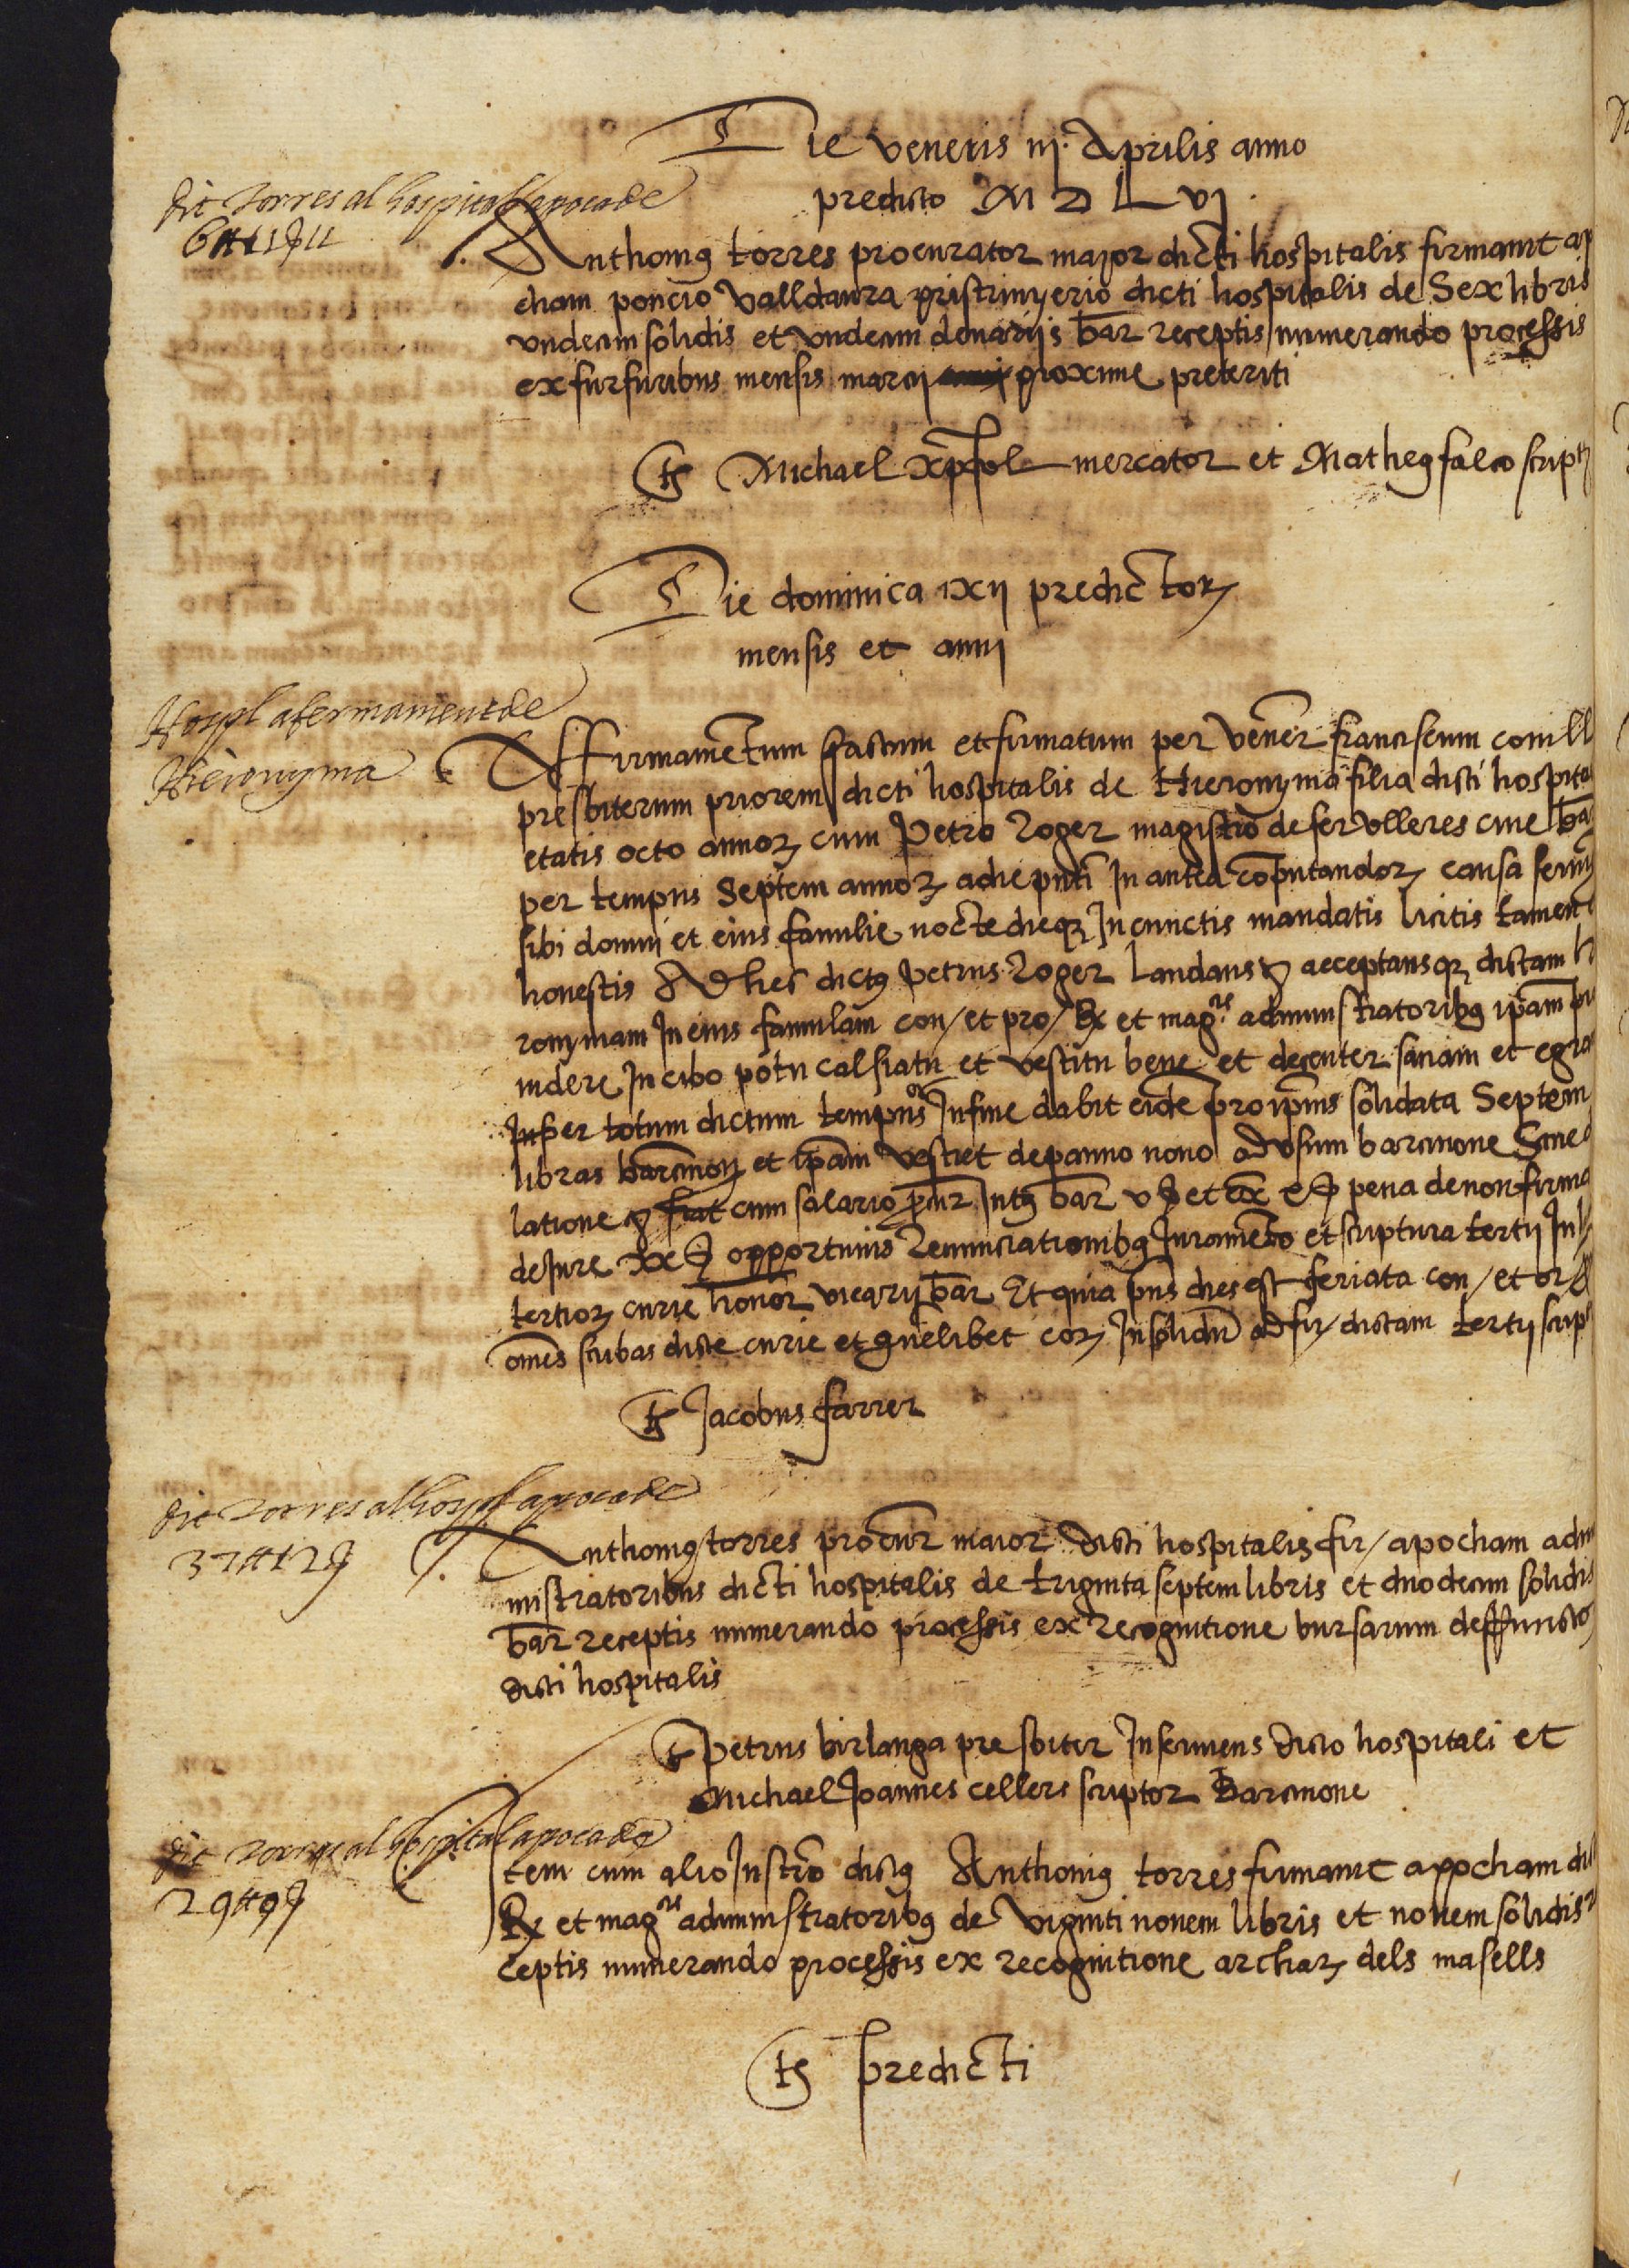 Die veneris iij. Aprilis anno
predicto M D L vj.
dit torres al hospital apoca de
6 ₶ 11 ß 11
Anthonius torres procurator major dicti hospitalis firmavit ap
cham poncio Valldaura pristrinyerio dicti hospitalis de Sex libris
undecim solidis et undecim denariis bar receptis numerando processis
ex furfuribus mensis marcij proxime preteriti
ts Michael Xpofol mercator et Matheus falco script
Die dominica predictor
mensis et anni
Hospl afermament de
Hieronyma
Affirmamentum factum et firmatum per Vener franciscum conill
presbiterum priorem dicti hospitalis de Hieronyma filia dicti hospita
etatis octo annor cum Petro Roger magistro de fer volleres cive bar
per tempus Septem annor a die pnti In antea computandor causa servi
sibi domui et eius familie nocte dieque In cunctis mandatis licitis tamen
honestis Ad hec dictus Petrus Roger laudans et acceptansque dictam hi
ronymam In eius famulam con / et pro / Rx et magcis administratoribus ipam pro
videre In cibo potu calsiatu et vestitu bene et decenter sanam et egra
per totum dictum tempus In fine dabit eidem pro ipius solidata Septem
libras barcinon et ipam vestiet de panno novo ad usum barcinone Sine
latione cum salario procur Intus bar v ß et ex x ß pena de non firma
de Jure xx ß opportunis Renunciationibus Juramento et scriptura tertij In
tertior curie honor vicarij bar Et quia pns dies est feriata con / et
omes scribas dicte curie et quelibet eor In solidum ad fir / dictam tertij scrip
ts Jacobus farrer
dit torres al hospl apoca de
37 ₶ 12 ß
Anthonius torres procur maior dicti hospitalis fir / apocham admi
nistratoribus dicti hospitalis de triginta septem libris et duodecim solidis
bar receptis numerando processis ex Recognitione bursarum deffunctor
dicti hospitalis
ts Petrus birlanga presbiter Inserviens dicto hospitali et
Michael Joannes cellers scriptor Barcinone
dit torres al hospital apoca de
29 ₶ 9 ß
Item cum alio Instro dictus Anthonius torres firmavit appocham dic
Rx et magcis administratoribus de viginti novem libris et novem solidis re
ceptis numerando processis ex recognitione archar dels masells
ts predicti